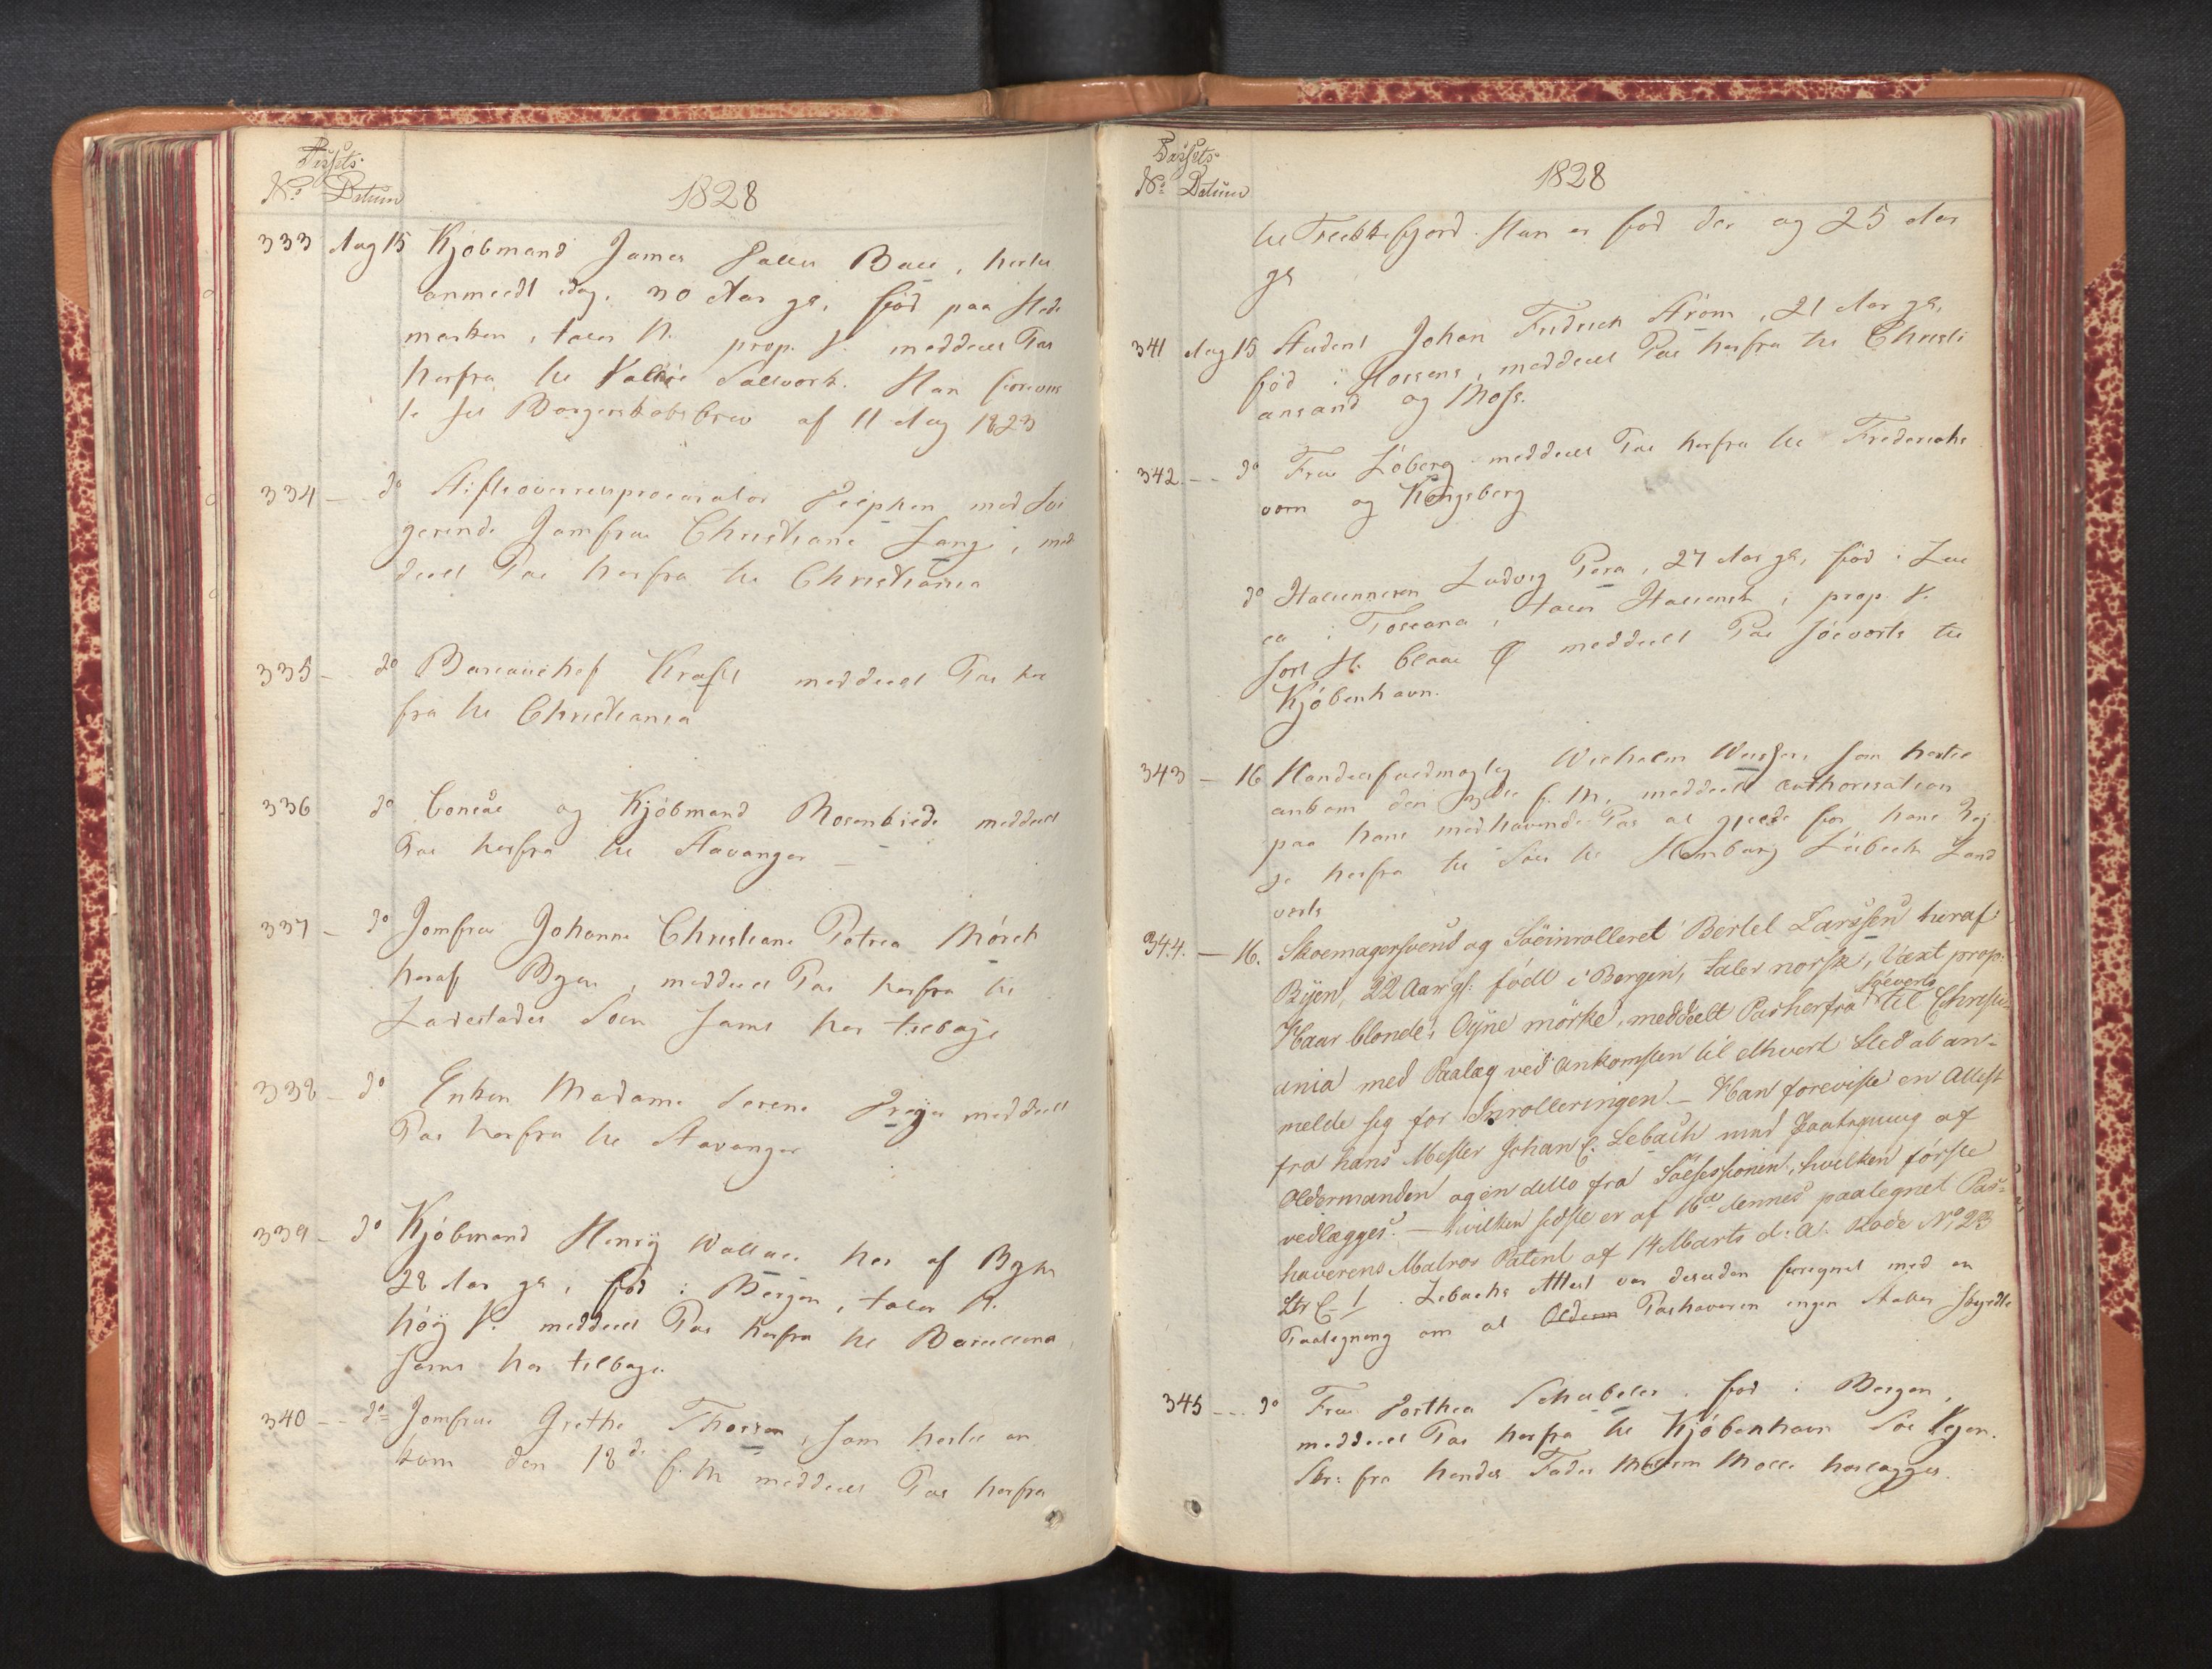 Passets
No Datum
1828
333 Aug 15 Kjøbmand James Bull, hertil
anmeldt idag, 30 Aar gl, fød paa Hede
marken, taler N. prop. V. meddeelt Pas
herfra til Salværk. Han foreviis
te sit Borgerskabsbrev af 11 Aug 1823
334 - do Stiftsoverretsprocurator med Svi
gerinde Jomfrue Christiane Lange, med
deelt Pas herfra til Christiania
335 - do Bureauchef Kraft meddeelt Pas her
fra til Christiania
336 do Consul og Kjøbmand Rosenkilde meddeelt
Pas herfra til Stavanger
337 - do Jomfrue Johanne Christiane Petrea Mörch
heraf Byen, meddeelt Pas herfra til
Ladestedet Soen samt her tilbage
338 - do Enken Madame Serene Preÿer meddeelt
Pas herfra til Stavanger
339 - do Kjøbmand Henrÿ Wallace her af Byen
28 Aar gl, fød i Bergen, taler N.
höÿ V. meddeelt Pas herfra til Barcellona
samt her tilbage
340 - do Jomfrue Grethe Thorsen, som hertil an
kom den 18de f. M meddeelt Pas herfra
Passets
No Datum
1828
til Flekkefjord. Han er fød der og 25 Aar
gl
341 Aug 15 Student Johan Fridrich Ström, 21 Aar gl,
fød i Horsens, meddeelt Pas herfra til Christi
ansand og Moss.
342 - do Frue Löberg meddeelt Pas herfra til Frederichs
værn og Kongsberg
do Italieneren Ludvig Pera, 27 Aar gl, fød i Luc
ca i Toscana, taler Italiensk, prop. V.
sort H. blaae Ø meddeelt Pas söeverts til
Kjöbenhavn.
343 - 16 Handelsfuldmægtig Wilhelm, som hertil
ankom den f. M, meddeelt authorisation
paa hans medhavende Pas at gjelde for hans Rej
se herfra til Söes til Hamburg Lübeck Land
verts
344. - 16. Skoemagersvend og Söeinrolleret Bertel Larssen heraf
Byen, 22 Aar gl: födt i Bergen, taler norsk, Væxt prop:
Haar blonde, Öyne mörke, meddeelt Pas herfra söeverts til Christi-
ania med Paalæg ved Ankomsten til ethvert Sted at an-
melde sig for Inrolleringen. - Han foreviste en Attest
fra hans Mester Johan C. Lebach med Paategning af
Oldermanden og en ditto fra Söesessionen, hvilken förste
vedlægges. - hvilken sidste er af 16d dennes paategnet Pas-
haverens Matros Patent af 14 Marts d: A: Rode No 23
Ltr C 1. Lebachs Attest var desuden foregnet med en
Paategning om at Olderm Pashaveren ingen Skatter skyldte
345 - do Frue Dorthea Schübeler fød i Bergen,
meddeelt Pas herfra til Kjöbenhavn Söe Vejen.
Skr: fra hendes Fader Moll herlægges.